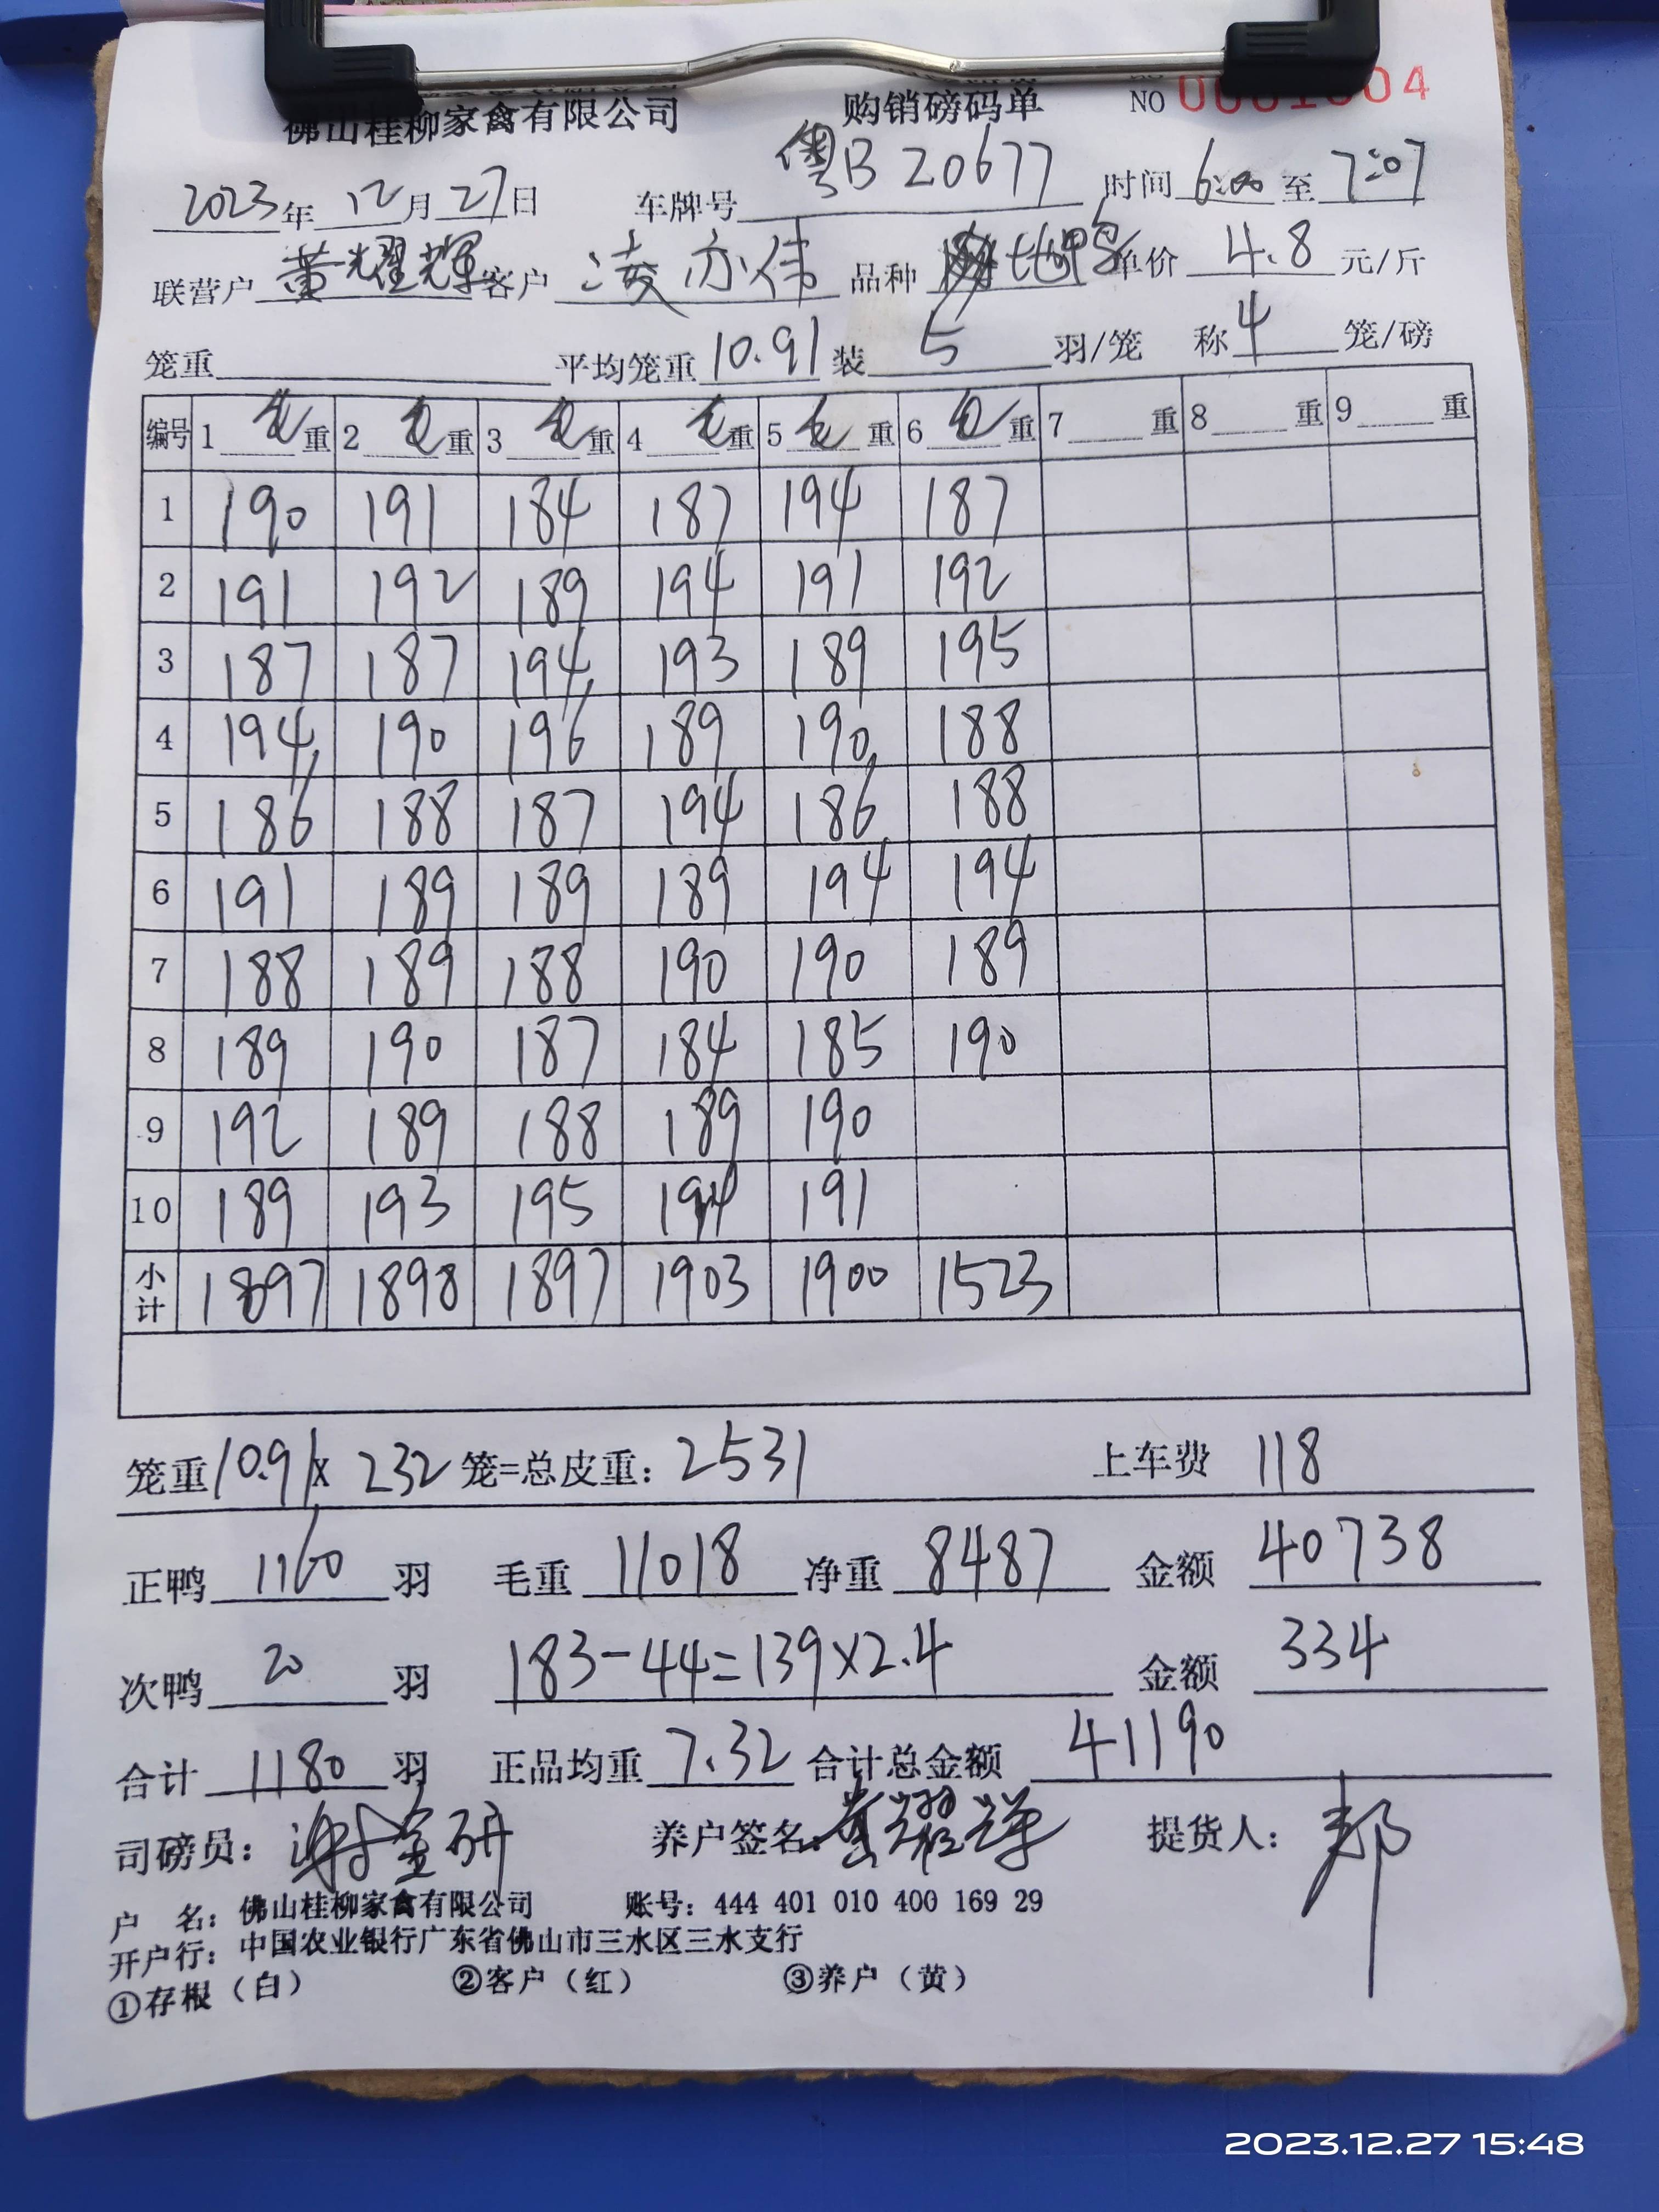 佛山桂柳家禽有限公司 购销磅码单 NO
2023年12月27日 车牌号 粤B20677 时间 6:00 至 7:07
联营户 黄耀輝 客户 凌亦伟 品种 单价 4.8 元/斤
笼重 平均笼重 10.91 装 5 羽/笼 称 4 笼/磅
编号 1 毛重 2 毛重 3 毛重 4 毛重 5 毛重 6 毛重 7 重 8 重 9 重
1 190 191 184 187 194 187
2 191 192 189 194 191 192
3 187 187 194 193 189 195
4 194 190 196 189 190 188
5 186 188 187 194 186 188
6 191 189 189 189 194 194
7 188 189 188 190 190 189
8 189 190 187 184 185 190
9 192 189 188 189 190
10 189 193 195 194 191
小计 1897 1898 1897 1903 1900 1523
笼重 10.91 x 232 笼=总皮重: 2531 上车费 118
正鸭 1160 羽 毛重 11018 净重 8487 金额 40738
次鸭 20 羽 183-44=139x2.4 金额 334
合计 1180 羽 正品均重 7.32 合计总金额 41190
司磅员: 养户签名: 黄耀洋 提货人:
户 名: 佛山桂柳家禽有限公司 账号: 444 401 010 400 169 29
开户行: 中国农业银行广东省佛山市三水区三水支行
①存根（白） ②客户（红） ③养户（黄）
2023.12.27 15:48